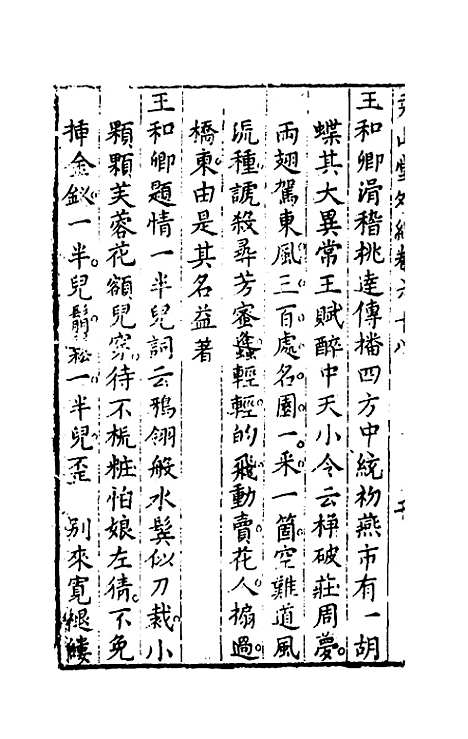 堯山堂外紀卷六十八
王和卿滑稽挑達傳播四方中統初燕市有一胡
蝶其大異常王賦醉中天小令云掙破莊周夢
兩翅駕東風三百處名園一采一箇空難道風
流種諕殺尋芳蜜蜂輕輕的飛動賣花人搧過
橋東由是其名益著
王和卿題情一半兒詞云鴉翎般水鬂似刀裁小
顆顆芙蓉花額兒窄待不梳粧怕娘左猜不免
揷金釵一半兒鬅鬆一半兒歪　別來寛褪縷